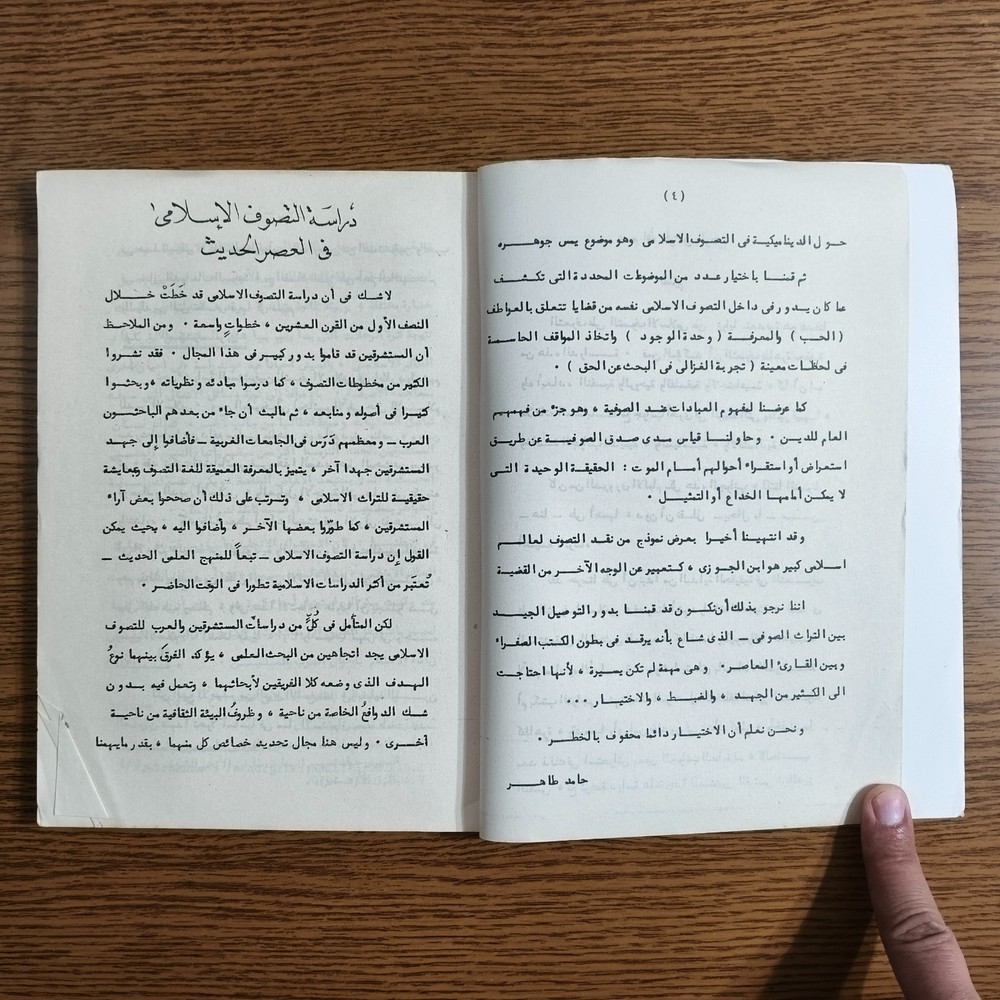 (٤)
حول الديناميكية فى التصوف الاسلامى وهو موضوع يمس جوهره
ثم قمنا باختيار عدد من الموضوعات المحددة التى تكشف
عما كان يدور فى داخل التصوف الاسلامى نفسه من قضايا تتعلق بالعواطف
(الحب) والمعرفة (وحدة الوجود) واتخاذ المواقف الحاسمة
فى لحظات معينة (تجربة الغزالى فى البحث عن الحق) .
كما عرضنا لمفهوم العبادات عند الصوفية ، وهو جزء من فهمهم
العام للدين . وحاولنا قياس مدى صدق الصوفية عن طريق
استعراض أو استقراء أحوالهم أمام الموت : الحقيقة الوحيدة التى
لا يمكن أمامها الخداع أو التمثيل .
وقد انتهينا أخيرا بعرض نموذج من نقد التصوف لعالم
اسلامى كبير هو ابن الجوزى ، كتعبير عن الوجه الآخر من القضية
اننا نرجو بذلك أن نكون قد قمنا بدور التوصيل الجيد
بين التراث الصوفى ــ الذى شاع بأنه يرقد فى بطون الكتب الصفراء
وبين القارئ المعاصر . وهى مهمة لم تكن يسيرة ، لأنها احتاجت
الى الكثير من الجهد ، والضبط ، والاختيار ...
ونحن نعلم أن الاختيار دائما محفوف بالخطر .
حامد طاهر
دراسة التصوف الإسلامى
فى العصر الحديث
لاشك فى أن دراسة التصوف الاسلامى قد خَطَتْ خلال
النصف الأول من القرن العشرين ، خطواتٍ واسعة . ومن الملاحظ
أن المستشرقين قد قاموا بدور كبير فى هذا المجال . فقد نشروا
الكثير من مخطوطات التصوف ، كما درسوا مبادئه ونظرياته ، وبحثوا
كثيرا فى أصوله ومنابعه ، ثم مالبث أن جاء من بعدهم الباحثون
العرب ــ ومعظمهم دَرَس فى الجامعات الغربية ــ فأضافوا إلى جهد
المستشرقين جهدا آخر ، يتميز بالمعرفة العميقة للغة التصوف وبمعايشة
حقيقية للتراث الاسلامى ، وترتب على ذلك أن صححوا بعض آراء
المستشرقين ، كما طوّروا بعضها الآخر ، وأضافوا اليه ، بحيث يمكن
القول إن دراسة التصوف الاسلامى ــ تبعاً للمنهج العلمى الحديث ــ
تُعتَبر من أكثر الدراسات الاسلامية تطورا فى الوقت الحاضر .
لكن المتأمل فى كُلٍّ من دراسات المستشرقين والعرب للتصوف
الاسلامى يجد اتجاهين من البحث العلمى ، يؤكد الفرقَ بينهما نوعُ
الهدف الذى وضعه كلا الفريقين لأبحاثهما ، وتعمل فيه بدون
شك الدوافعُ الخاصة من ناحية ، وظروفُ البيئة الثقافية من ناحية
أخرى . وليس هنا مجال تحديد خصائص كل منهما ، بقدر مايهمنا